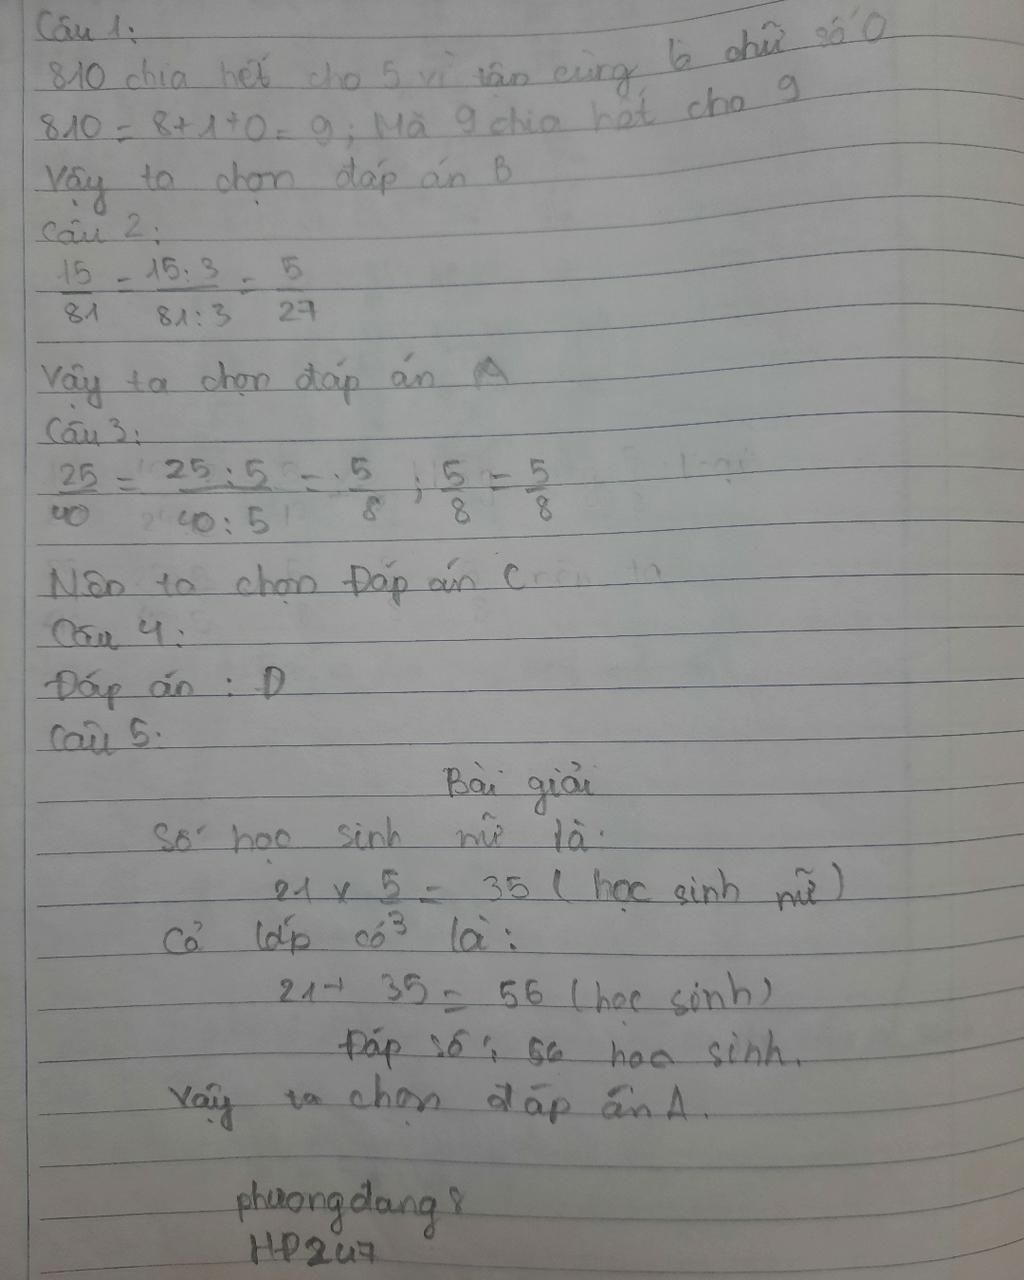 Câu 1:
810 chia hết cho 5 vì tận cùng là chữ số 0
810 = 8+1+0 = 9; Mà 9 chia hết cho 9
Vậy ta chọn đáp án B
Câu 2:
15/81 = 15:3/81:3 = 5/27
Vậy ta chọn đáp án A
Câu 3:
25/40 = 25:5/40:5 = 5/8 ; 5/8 = 5/8
Nên ta chọn Đáp án C
Câu 4:
Đáp án : D
Câu 5:
Bài giải
Số học sinh nữ là:
21 x 5/3 = 35 (học sinh nữ)
Cả lớp có là:
21 + 35 = 56 (học sinh)
Đáp số : 56 học sinh.
Vậy ta chọn đáp án A.
phuongdang8
HP247